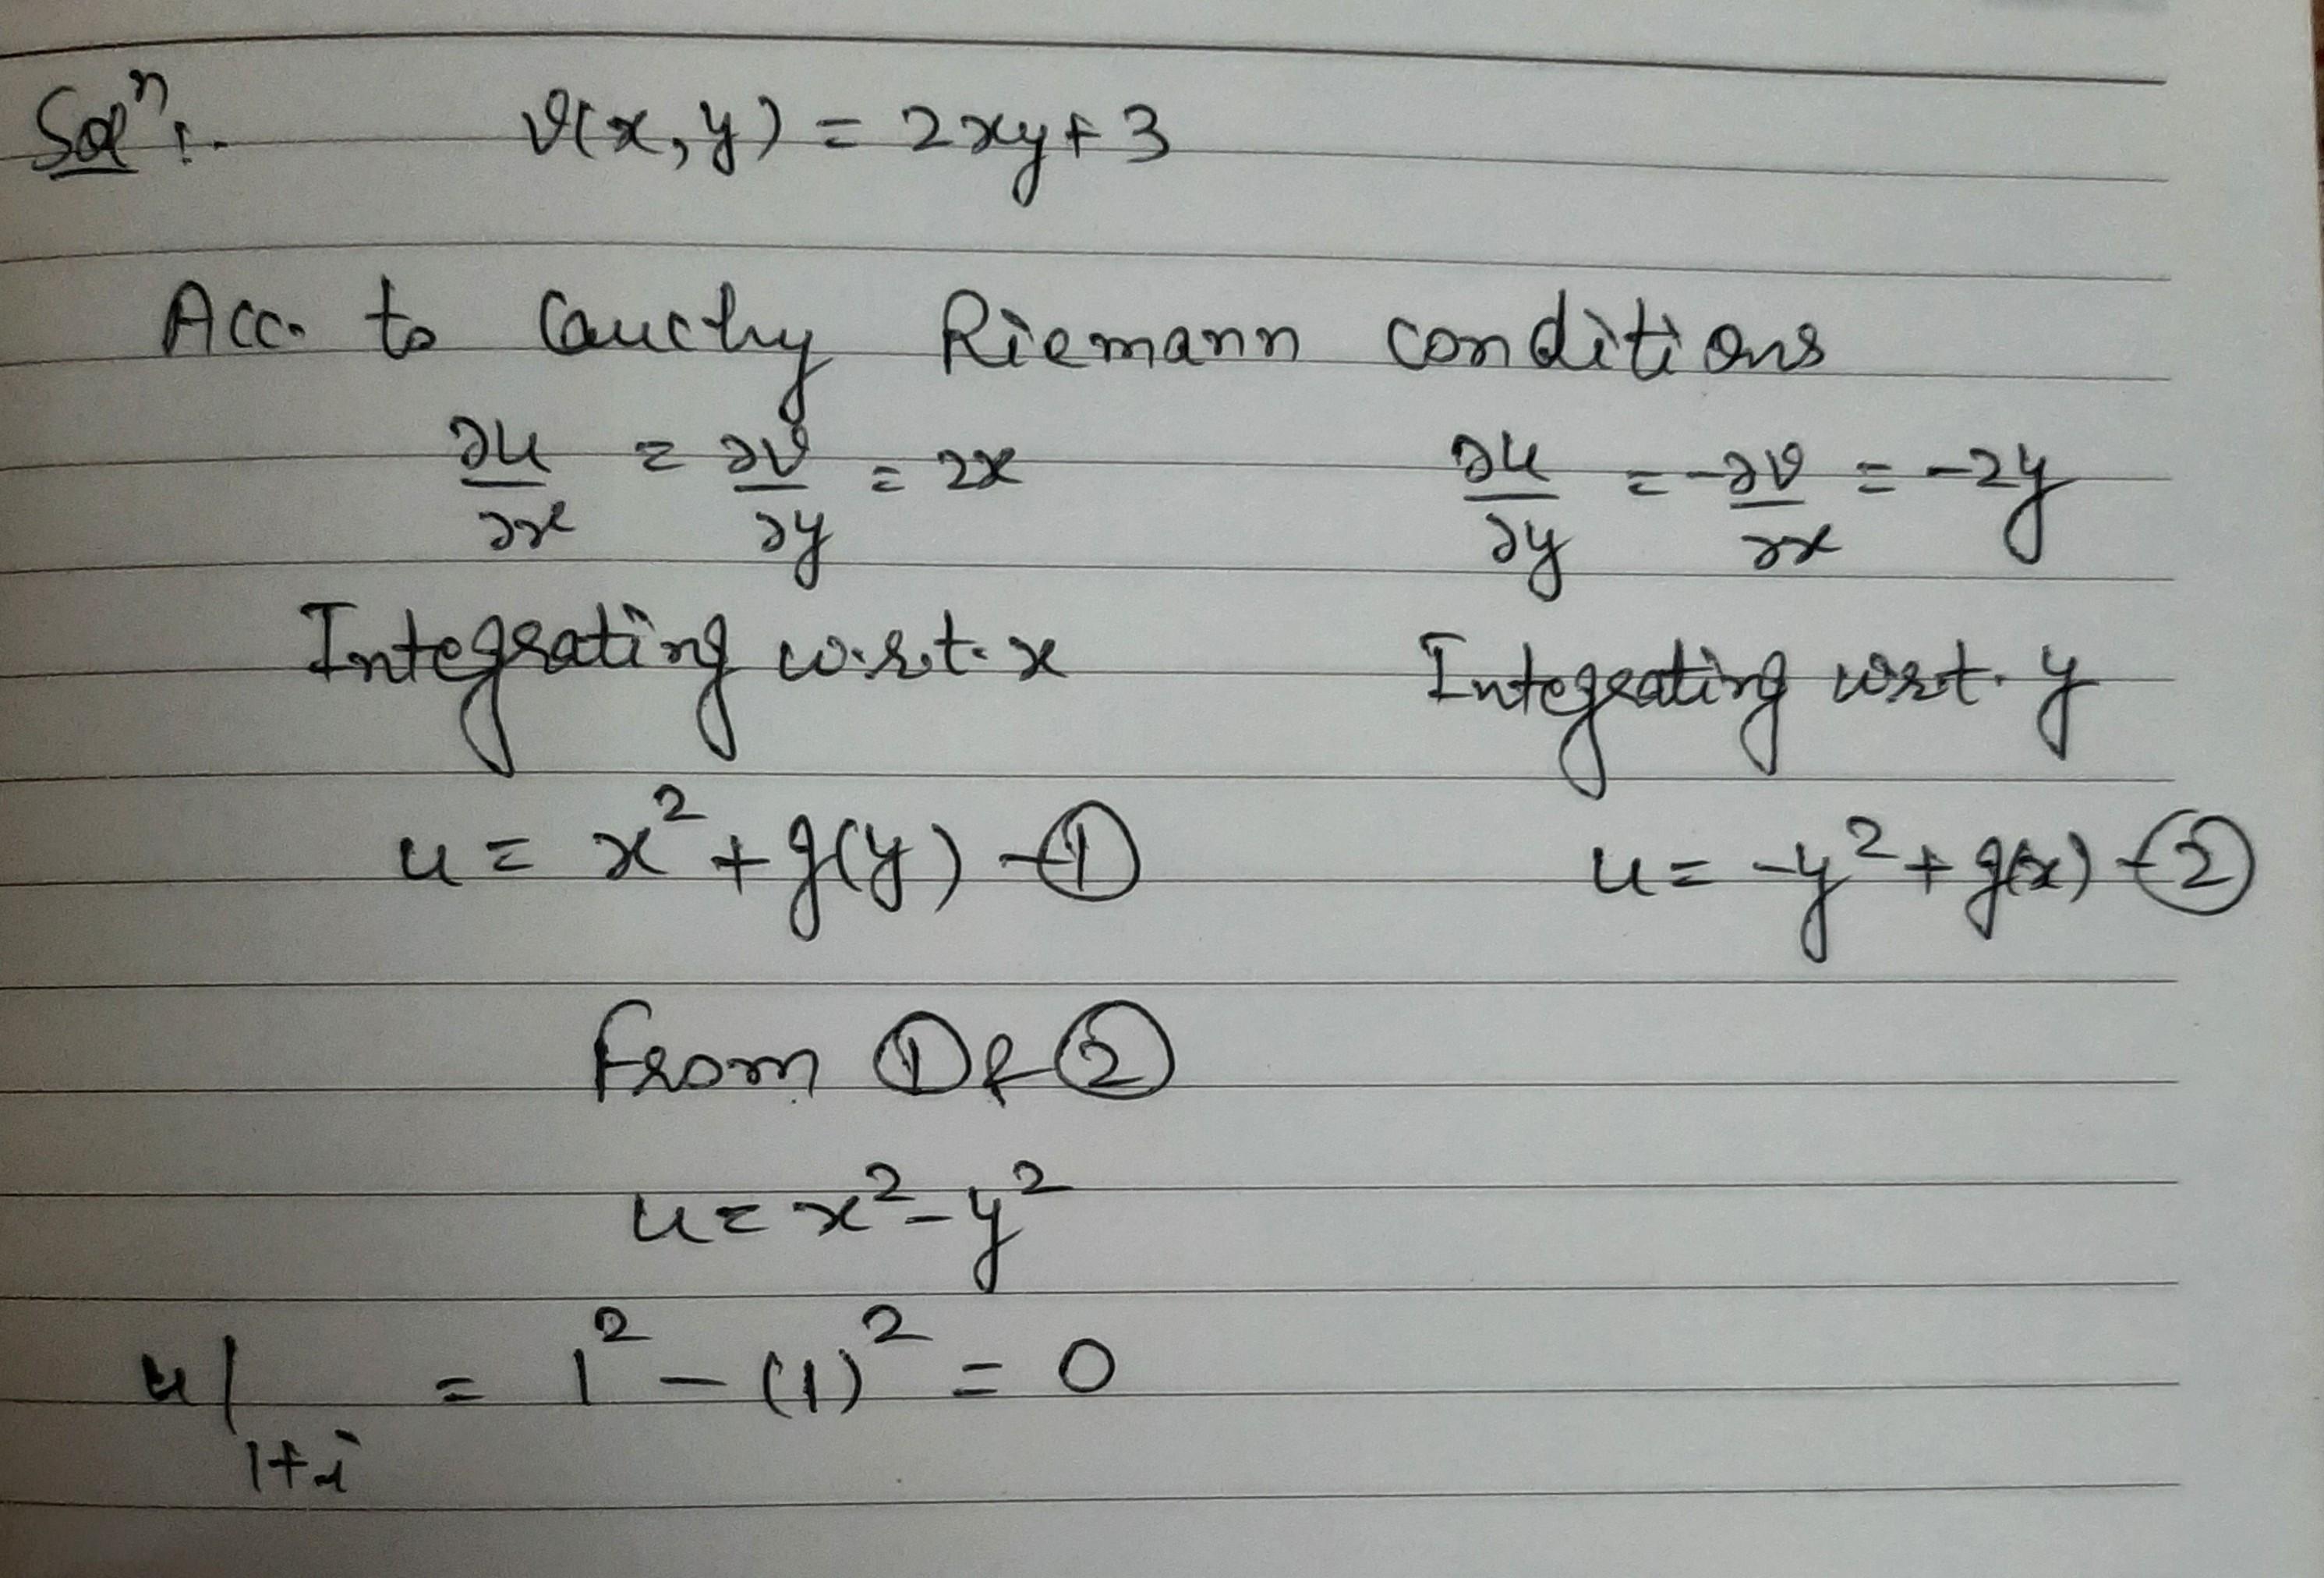 Solⁿ:- v(x,y) = 2xy+3
Acc. to Cauchy Riemann conditions
∂u/∂x = ∂v/∂y = 2x ∂u/∂y = -∂v/∂x = -2y
Integrating w.r.t. x Integrating wrt. y
u = x² + g(y) -① u = -y² + g(x) -②
From ① & ②
u = x² - y²
u|₁₊ᵢ = 1² - (1)² = 0